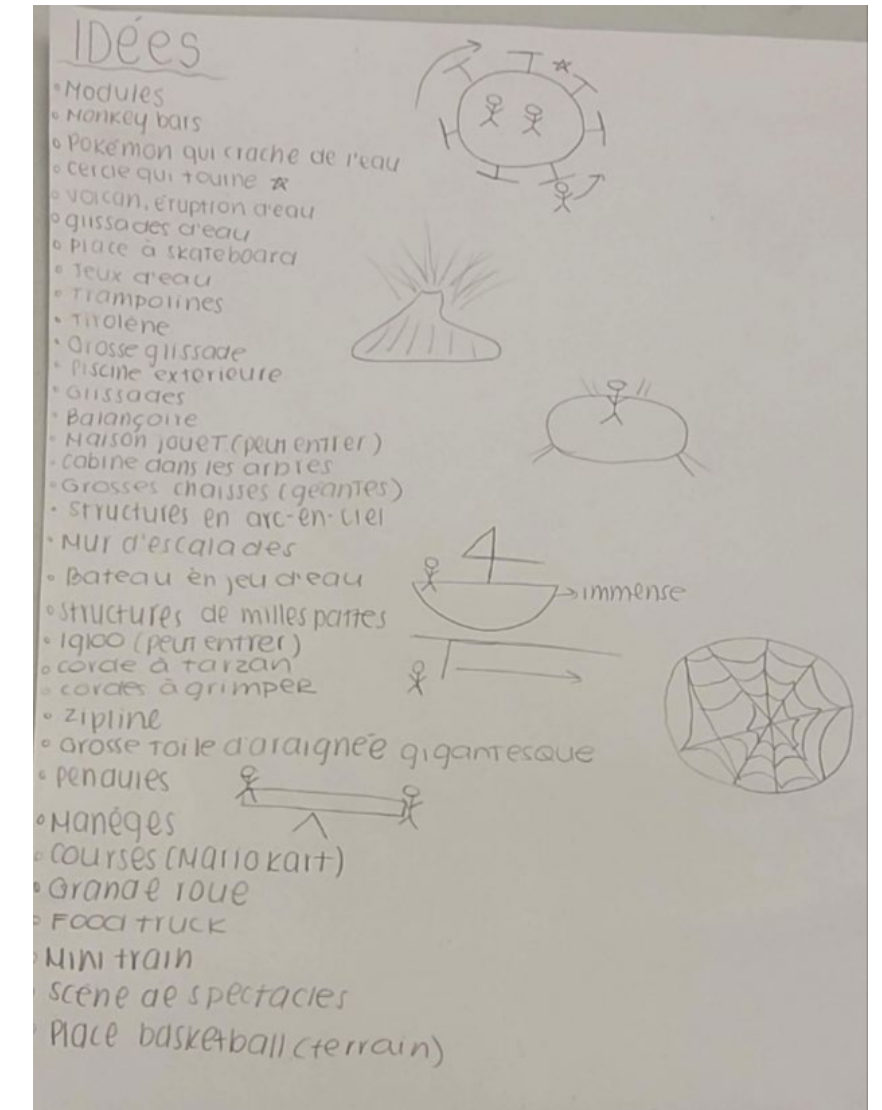 IDées
• Modules
• Monkey bars
• Pokémon qui crache de l'eau
• cercle qui tourne ☆
• volcan, éruption d'eau
• glissades d'eau
• Place à skateboard
• Jeux d'eau
• Trampolines
• Tirolène
• Grosse glissade
• Piscine exterieure
• Glissades
• Balançoire
• Maison jouet (peut entrer)
• cabine dans les arbres
• Grosses chaisses (géantes)
• structures en arc-en-ciel
• Mur d'escalades
• Bateau en jeu d'eau
→ immense
• structures de milles pattes
• igloo (peut entrer)
• corde à tarzan
• cordes à grimper
• zipline
• Grosse toile d'araignée gigantesque
• pendules
• Manéges
• courses (Mario kart)
• Grande roue
• Food truck
• Mini train
• scène de spectacles
• Place basketball (terrain)